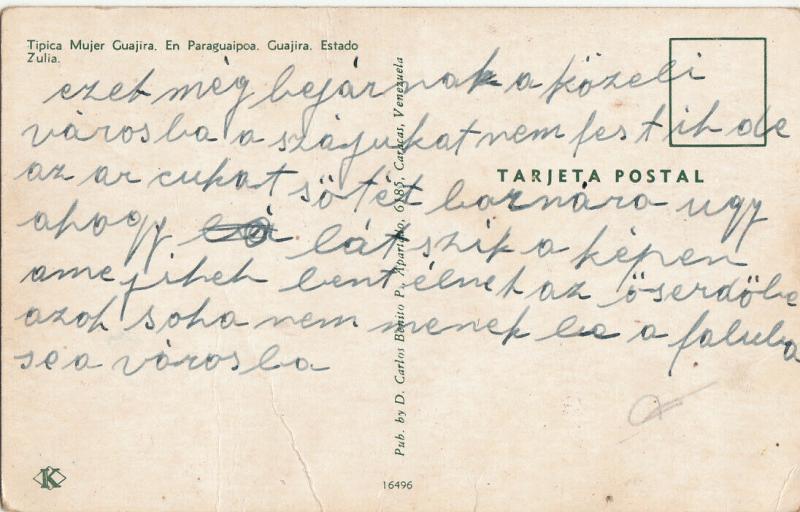 Tipica Mujer Guajira. En Paraguaipoa. Guajira. Estado
Zulia.
ezek még bejárnak a közeli
városba a szájukat nem festik de
az arcukat sötét barnára ugy
ahogy látszik a képen
amejikek bent élnek az őserdőbe
azok soha nem menek be a faluba
se a városba
TARJETA POSTAL
Pub. by D. Carlos Benito P., Apartado. 6185, Caracas, Venezuela
K
16496